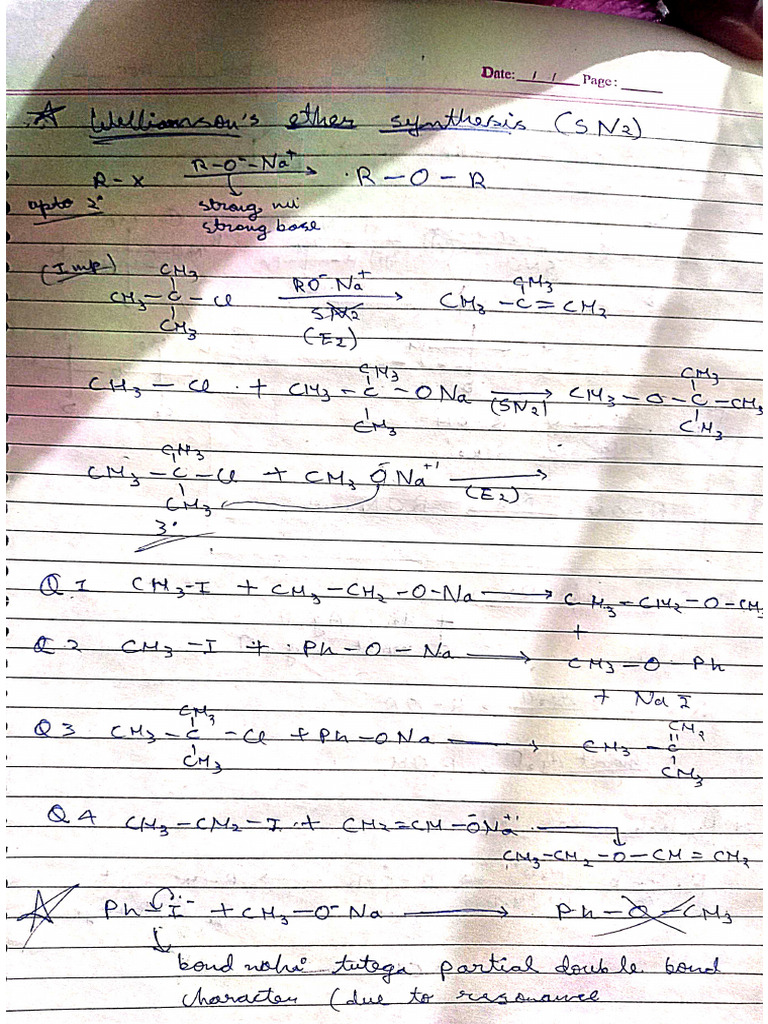 Date: / / Page:
☆ Williamson's ether synthesis (SN2)
R-X R-O⁻-Na⁺ → R-O-R
upto 2° ↓ strong nu
strong base
(Imp)
CH3 CH3
CH3-C-Cl RO⁻Na⁺ → CH3-C=CH2
CH3 SN2
(E2)
CH3 CH3
CH3-Cl + CH3-C-ONa → CH3-O-C-CH3
CH3 (SN2) CH3
CH3
CH3-C-Cl + CH3ŌNa⁺ →
CH3 (E2)
3°
Q.1 CH3-I + CH3-CH2-O-Na → CH3-CH2-O-CH3
+
Q 2 CH3-I + Ph-O-Na → CH3-O-Ph
+ NaI
CH3 CH2
Q 3 CH3-C-Cl + Ph-ONa → CH3-C
CH3 CH3
Q 4 CH3-CH2-I + CH2=CH-ŌNa⁺ →
CH3-CH2-O-CH=CH2
☆ Ph-I + CH3-O⁻Na → Ph-O-CH3
↓
bond nahi tutega partial double bond
character (due to resonance